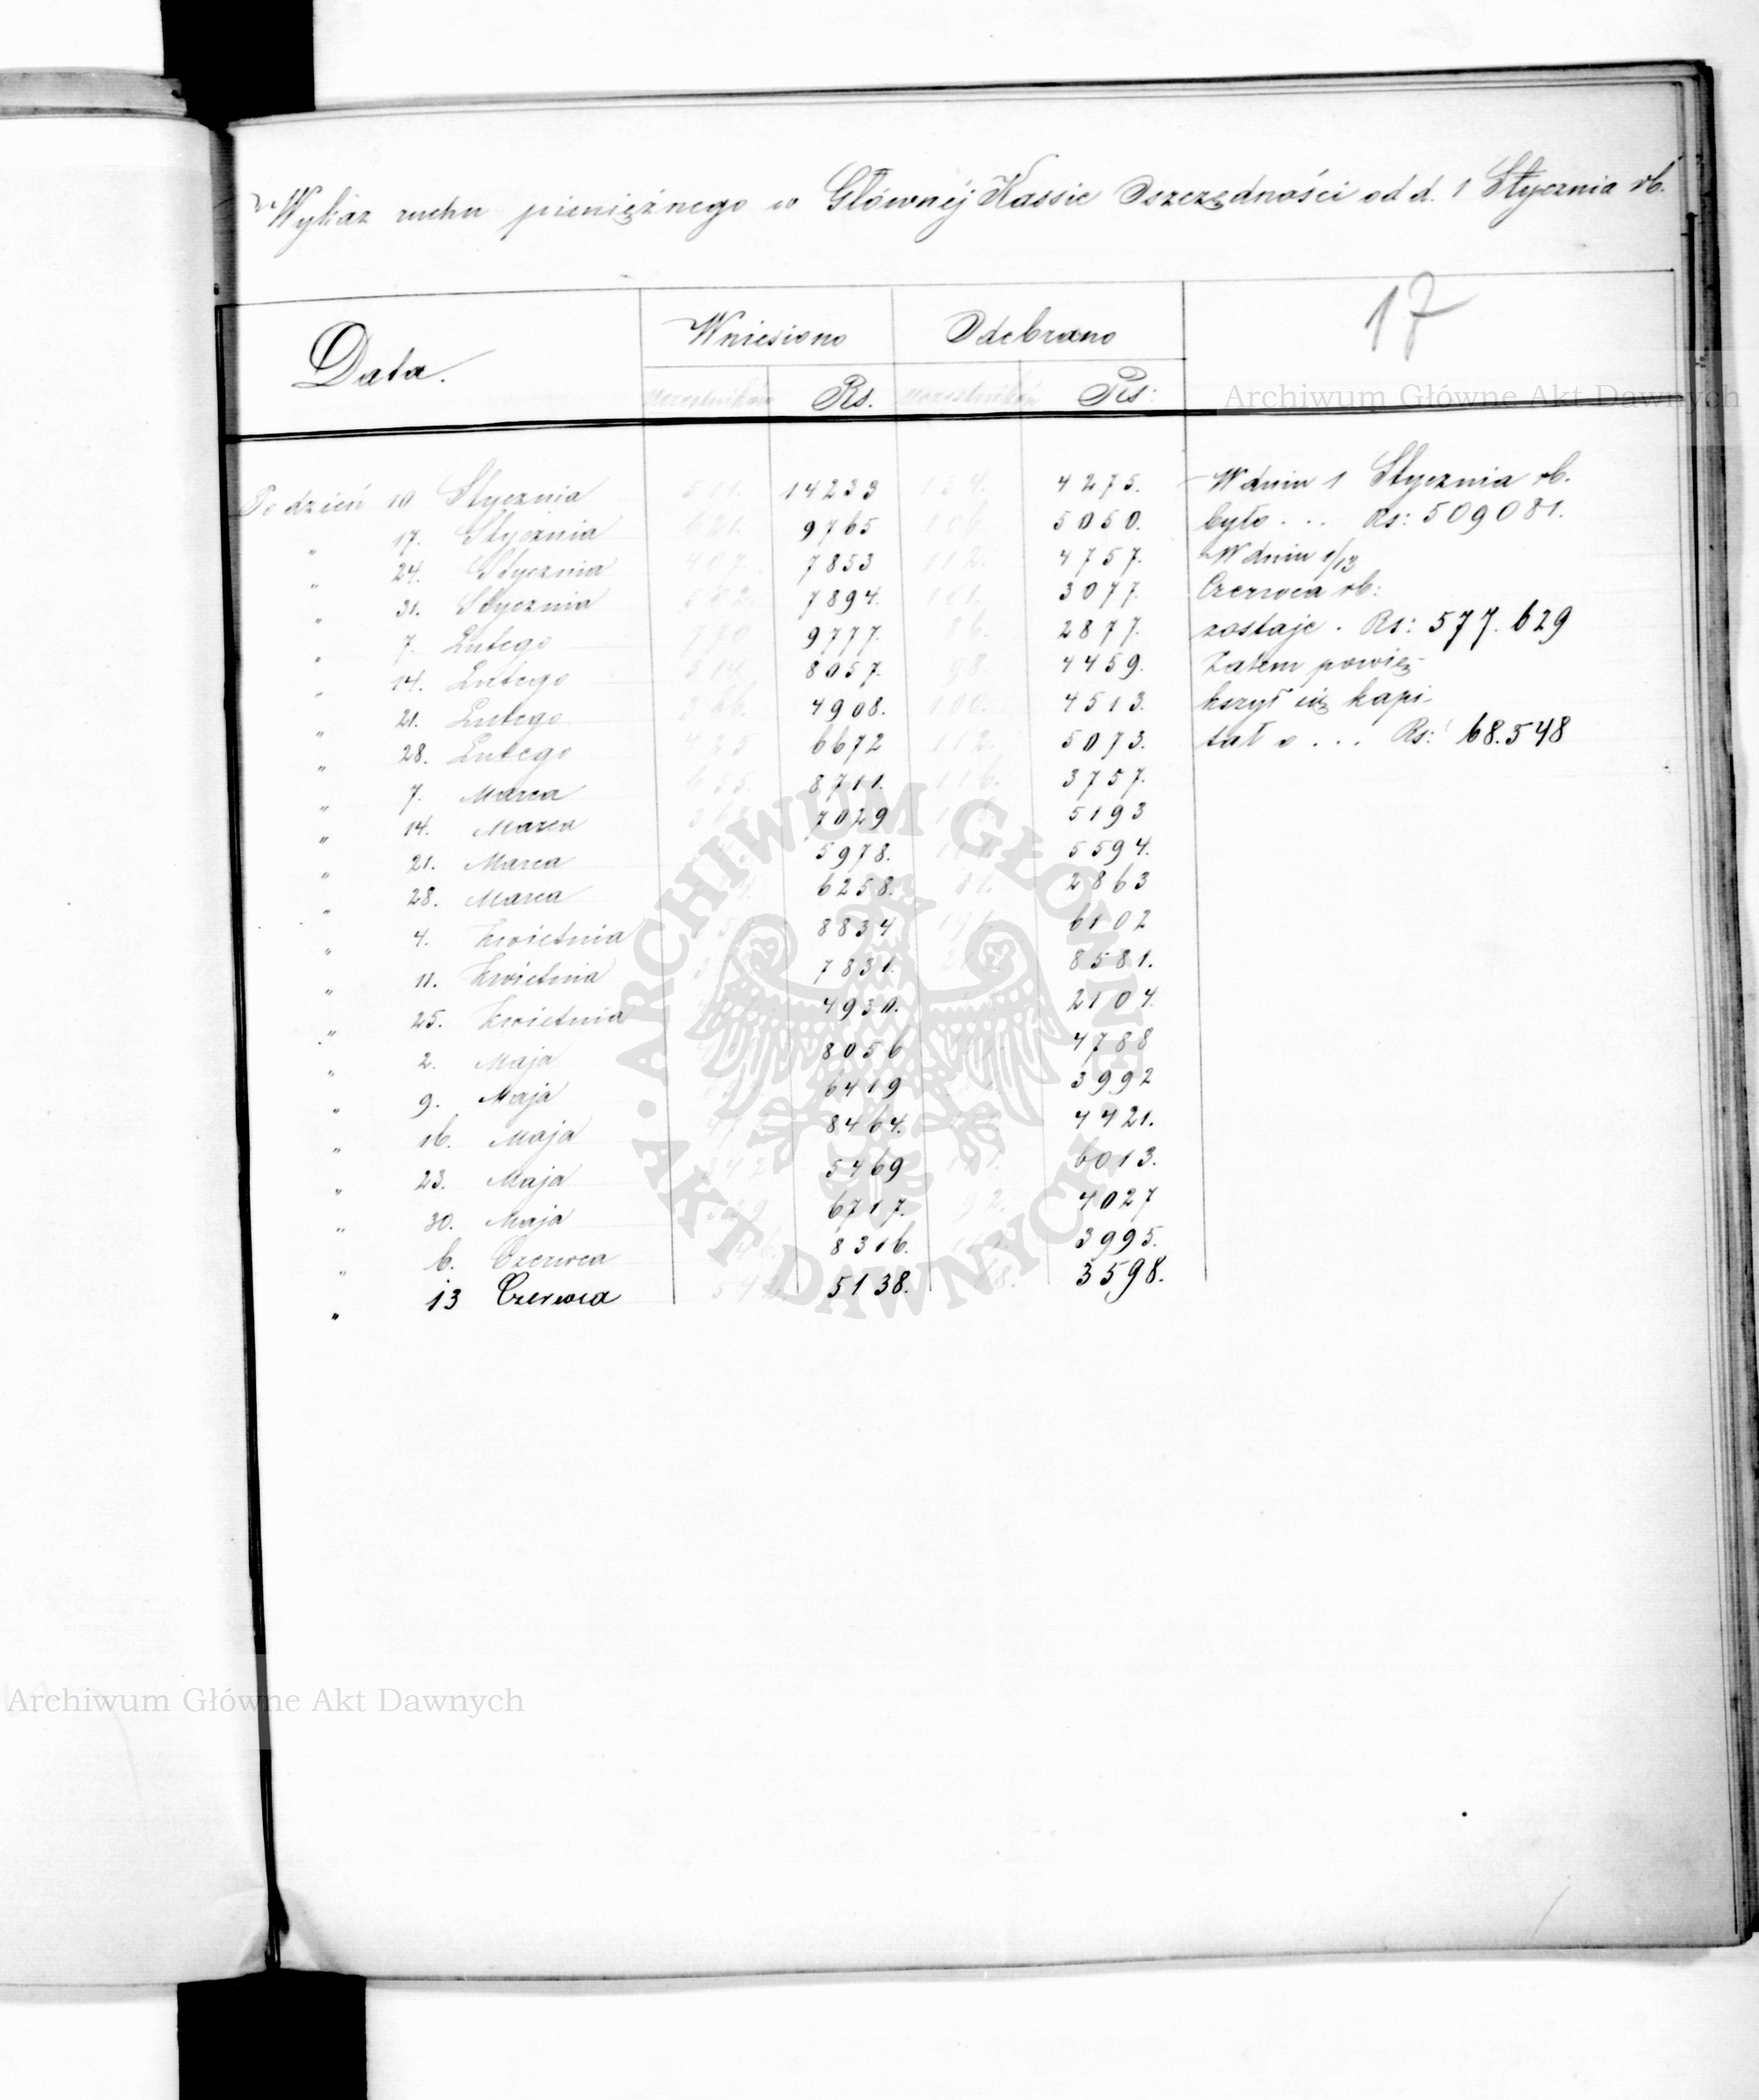 Wykaz ruchu pieniężnego w Głównéj Kassie Oszczędności od d. 1 Stycznia rb.
17
Data. Wniesiono Odebrano
Uczestników Rs. Uczestników Rs:
Archiwum Główne Akt Dawnych
Po dzień 10 Stycznia 14233 134. 4275. W dniu 1 Stycznia rb.
" 17. Stycznia 9765 5050. było . . . Rs: 509081.
" 24. Stycznia 407. 7853 112. 4757. W dniu 1/13
" 31. Stycznia 7894. 101. 3077. Czerwca rb:
" 7. Lutego 9777. 86. 2877. zostaje . Rs: 577.629
" 14. Lutego 514. 8057. 98. 4459. Zatem powię-
" 21. Lutego 366. 4908. 100. 4513. kszył się kapi-
" 28. Lutego 425 6672 112. 5073. tał o . . . Rs: 68.548
" 7. Marca 655. 8711. 116. 3757.
" 14. Marca 7029 5193
" 21. Marca 5978. 5594.
" 28. Marca 6258. 2863
" 4. Kwietnia 8834 6102
" 11. Kwietnia 7831. 8581.
" 25. Kwietnia 4930. 2104.
" 2. Maja 8056 4788
" 9. Maja 6419 3992
" 16. Maja 8464. 4421.
" 23. Maja 5469 6013.
" 30. Maja 6717. 92. 4027
" 6. Czerwca 8316. 3995.
" 13 Czerwca 5138. 3598.
ARCHIWUM GŁÓWNE
AKT DAWNYCH
Archiwum Główne Akt Dawnych